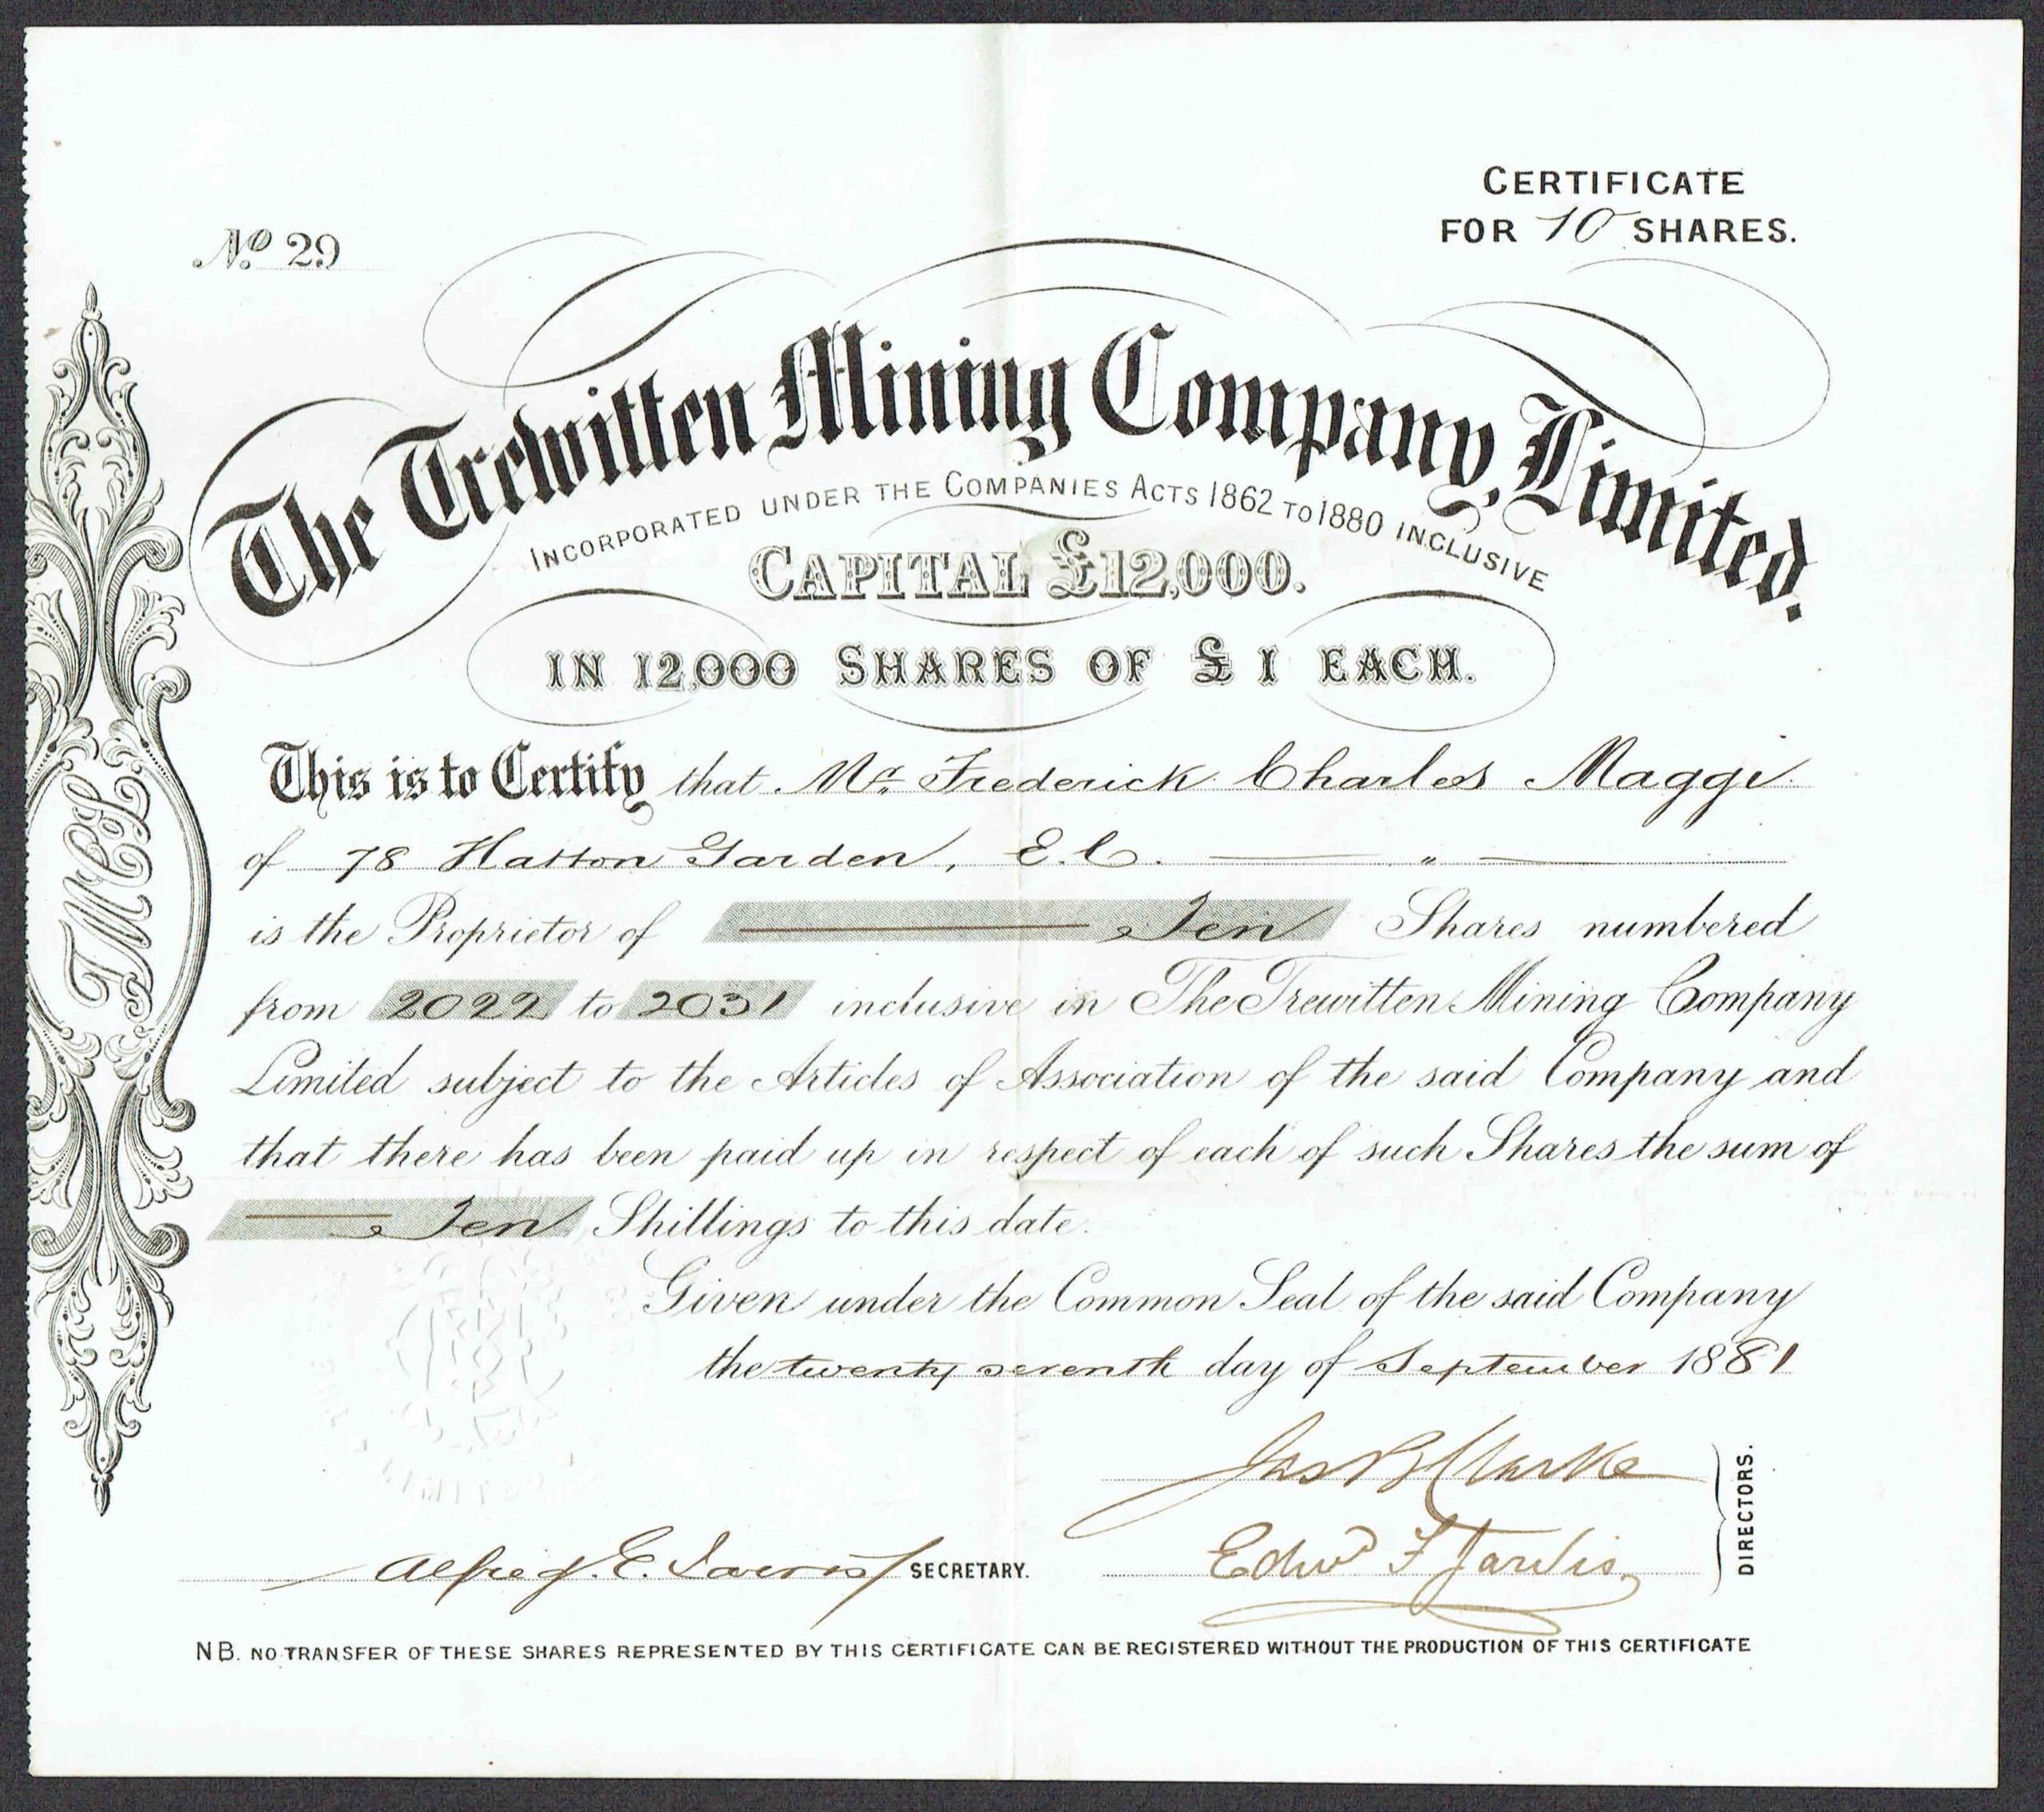 No. 29
CERTIFICATE
FOR 10 SHARES.
The Trewitten Mining Company, Limited.
INCORPORATED UNDER THE COMPANIES ACTS 1862 TO 1880 INCLUSIVE
CAPITAL £12,000.
IN 12,000 SHARES OF £1 EACH.
This is to Certify that Mr. Frederick Charles Maggi
of 78 Hatton Garden, E.C. — " —
is the Proprietor of — Ten Shares numbered
from 2022 to 2031 inclusive in The Trewitten Mining Company
Limited subject to the Articles of Association of the said Company and
that there has been paid up in respect of each of such Shares the sum of
— Ten Shillings to this date.
Given under the Common Seal of the said Company
the twenty seventh day of September 1881
Jas B Clarke
Edwd F Jarvis
DIRECTORS.
Alfred. E. SECRETARY.
NB. NO TRANSFER OF THESE SHARES REPRESENTED BY THIS CERTIFICATE CAN BE REGISTERED WITHOUT THE PRODUCTION OF THIS CERTIFICATE
TMCL